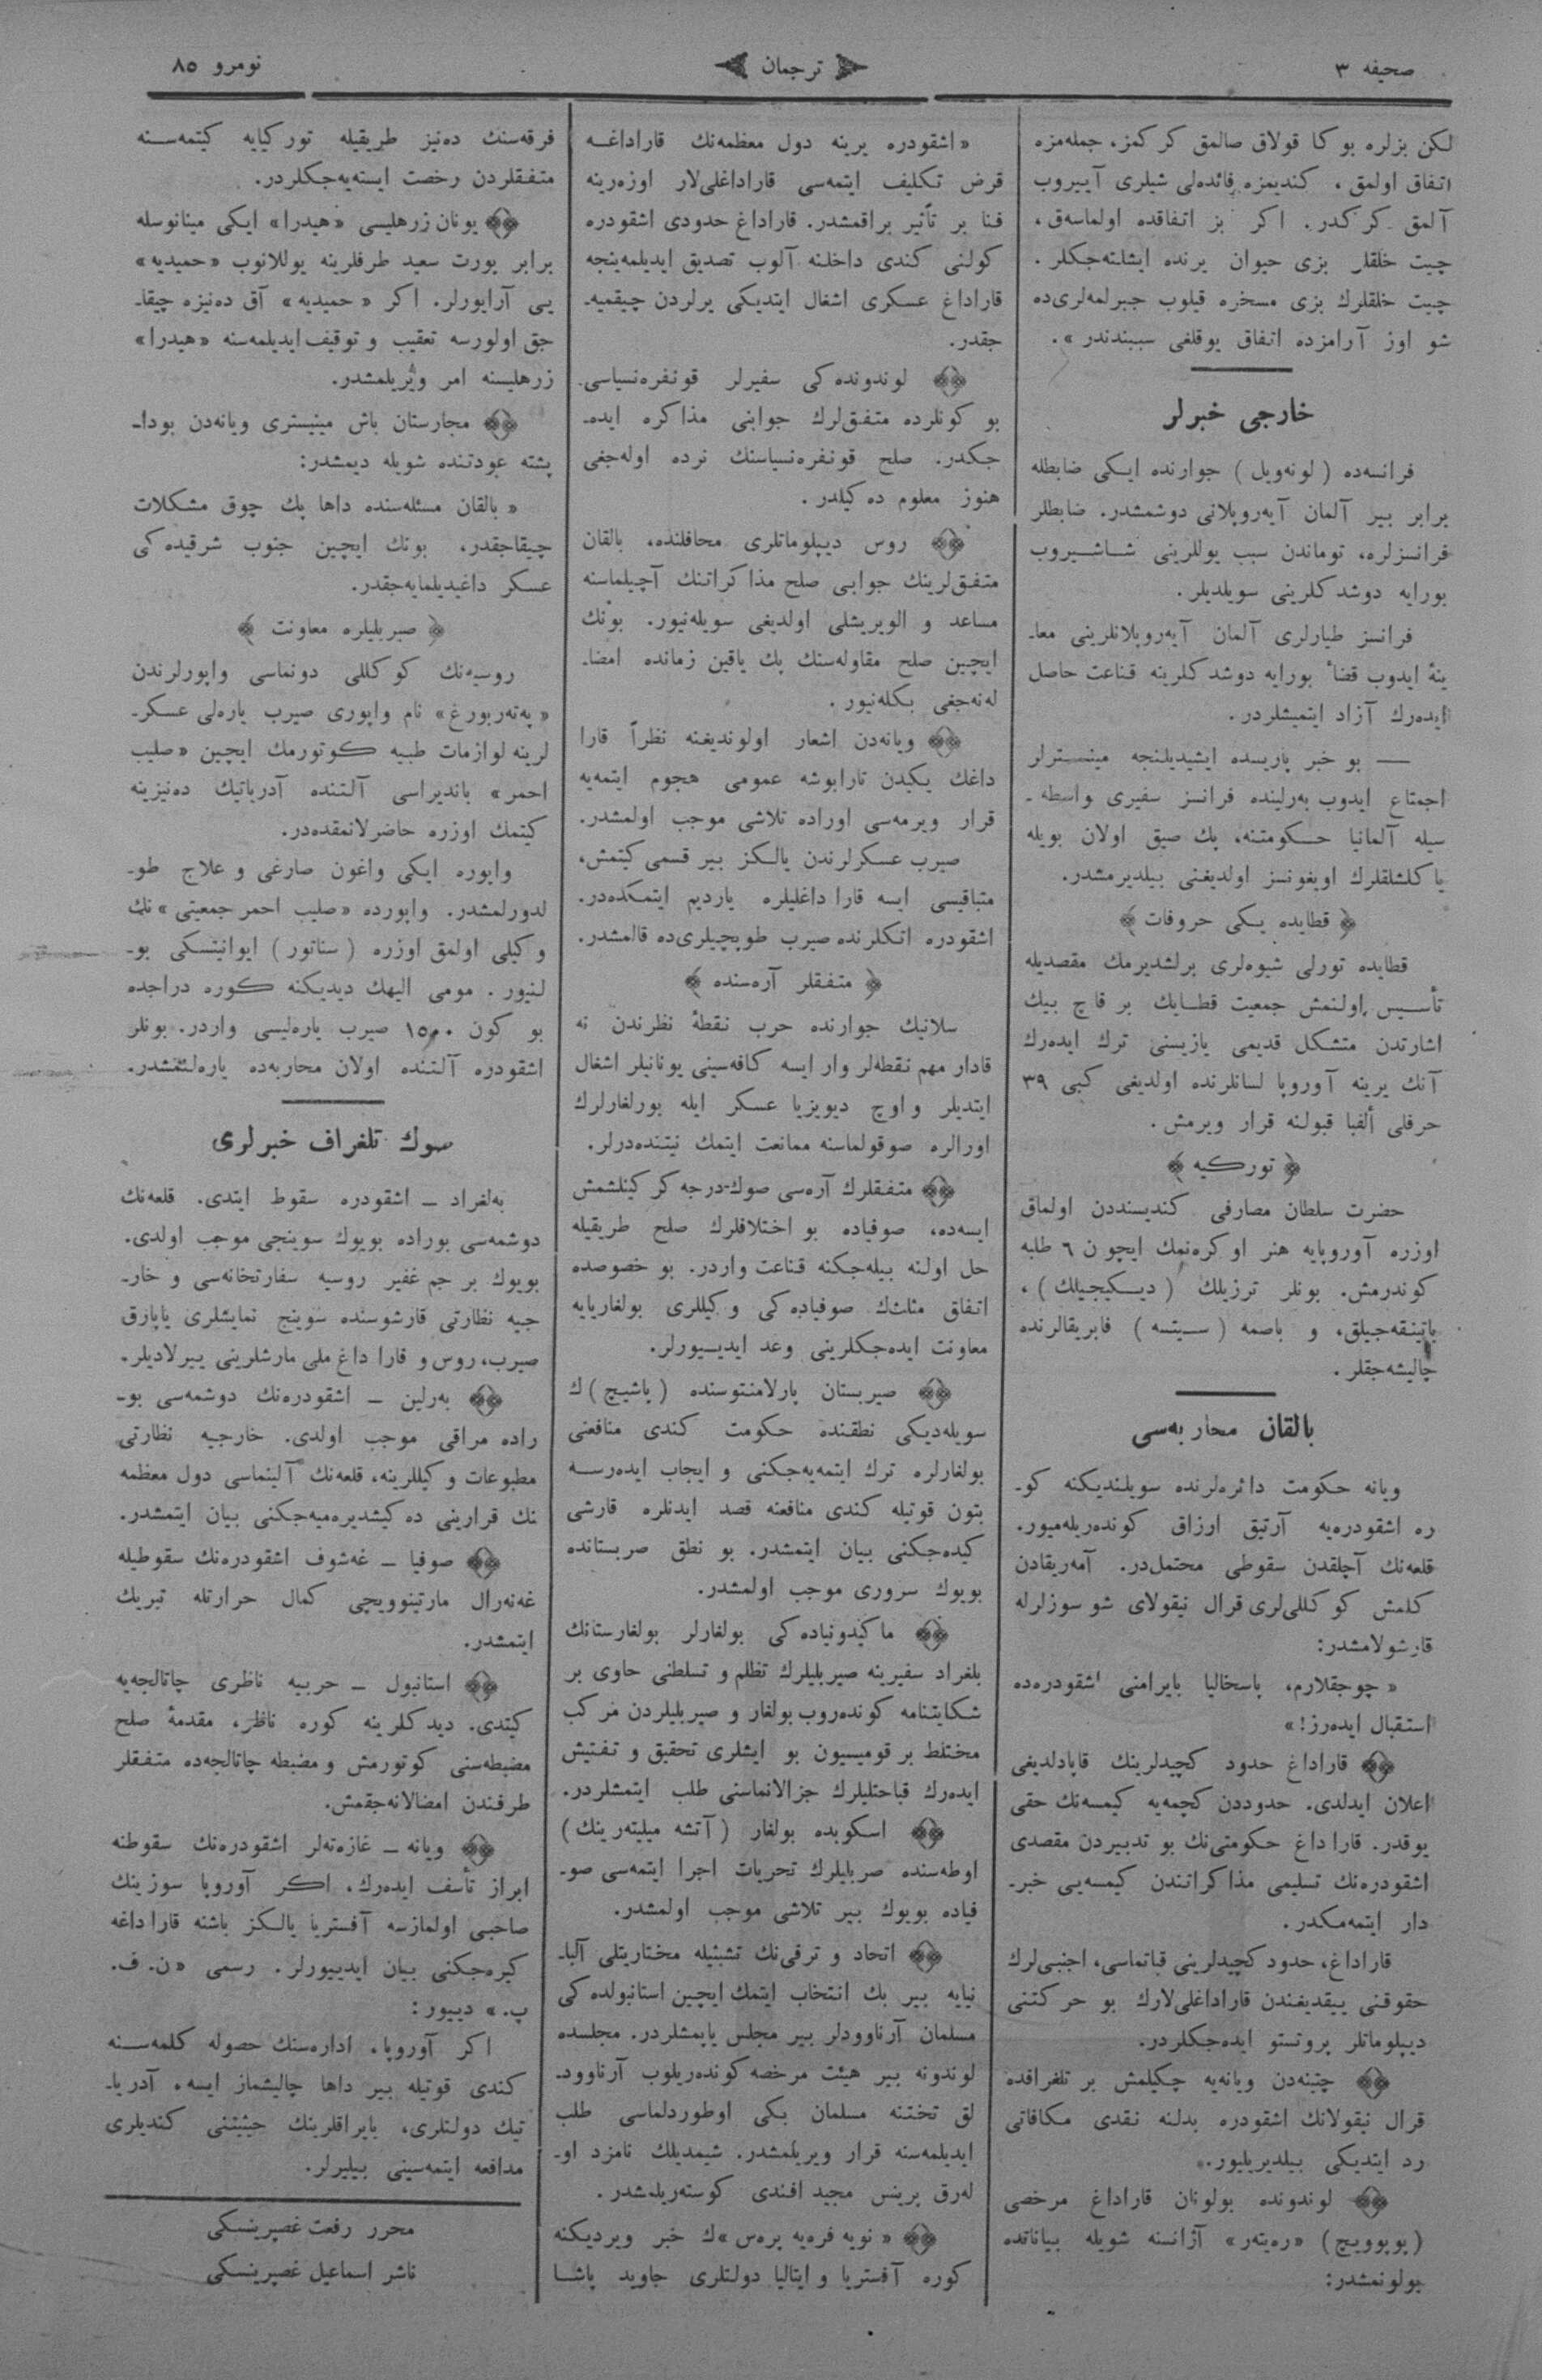 صحیفه ۳
ترجمان
نومرو ۸۵
لکن بزلره بوکا قولاق صالمق کرکمز، جمله‌مزه
اتفاق اولمق، کندیمزه فائده‌لی شیلری آییروب
آلمق کرکدر. اکر بز اتفاقده اولماسه‌ق،
چیت خلقلر بزی حیوان یرنده ایشلته‌جکلر.
چیت خلقلرك بزی مسخره قیلوب جبرلمه‌لری‌ده
شو اوز آرامزده اتفاق یوقلغی سببندندر».
خارجی خبرلر
فرانسه‌ده (لونه‌ویل) جوارنده ایکی ضابطله
برابر بیر آلمان آیه‌روپلانی دوشمشدر. ضابطلر
فرانسزلره، توماندن سبب یوللرینی شاشیروب
بورایه دوشدکلرینی سویلدیلر.
فرانسز طیارلری آلمان آیه‌روپلانلرینی معا-
ینهٔ ایدوب قضاٴ بورایه دوشدکلرینه قناعت حاصل
ایده‌رك آزاد ایتمیشلردر.
— بو خبر پاریسده ایشیدیلنجه مینسترلر
اجمتاع ایدوب به‌رلینده فرانسز سفیری واسطه-
سیله آلمانیا حکومتنه، پك صیق اولان بویله
یاکلشلقلرك اویغونسز اولدیغنی بیلدیرمشدر.
﴿ قطایده یکی حروفات ﴾
قطایده تورلی شیوه‌لری برلشدیرمك مقصدیله
تأسیس اولنمش جمعیت قطایك بر قاچ بیك
اشارتدن متشکل قدیمی یازیسنی ترك ایده‌رك
آنك یرینه آوروپا لسانلرنده اولدیغی کبی ۳۹
حرفلی ألفبا قبولنه قرار ویرمش.
﴿ تورکیه ﴾
حضرت سلطان مصارفی کندیسندن اولماق
اوزره آوروپایه هنر اوکره‌نمك ایچون ٦ طلبه
کوندرمش. بونلر ترزیلك (دیکیجیلك)،
یاتینقه‌جیلق، و باصمه (سیتسه) فابریقالرنده
چالیشه‌جقلر.
بالقان محاربه‌سی
ویانه حکومت دائره‌لرنده سویلندیکنه کو-
ره اشقودره‌یه آرتیق ارزاق کونده‌ریله‌میور.
قلعه‌نك آچلقدن سقوطی محتمل‌در. آمه‌ریقادن
کلمش کوکللی‌لری قرال نیقولای شو سوزلرله
قارشولامشدر:
« چوجقلارم، پاسخالیا بایرامنی اشقودره‌ده
استقبال ایده‌رز!»
قاراداغ حدود کچیدلرینك قاپادلدیغی
اعلان ایدلدی. حدوددن کچمه‌یه کیمسه‌نك حقی
یوقدر. قاراداغ حکومتی‌نك بو تدبیردن مقصدی
اشقودره‌نك تسلیمی مذاکراتندن کیمسه‌یی خبر-
دار ایتمه‌مکدر.
قاراداغ، حدود کچیدلرینی قپاتماسی، اجنبی‌لرك
حقوقنی ییقدیغندن قاراداغلی‌لارك بو حرکتنی
دیپلوماتلر پروتستو ایده‌جکلردر.
چتینه‌دن ویانه‌یه چکیلمش بر تلغرافده
قرال نیقولانك اشقودره بدلنه نقدی مکافاتی
رد ایتدیکی بیلدیریلیور.
لوندونده بولونان قاراداغ مرخصی
(پوپوویچ) «ره‌یته‌ر» آژانسنه شویله بیاناتده
بولونمشدر:
« اشقودره یرینه دول معظمه‌نك قاراداغه
قرض تکلیف ایتمه‌سی قاراداغلی‌لار اوزه‌رینه
فنا بر تأثیر براقمشدر. قاراداغ حدودی اشقودره
کولنی کندی داخلنه آلوب تصدیق ایدیلمه‌ینجه
قاراداغ عسکری اشغال ایتدیکی یرلردن چیقمیه-
جقدر.
لوندونده‌کی سفیرلر قونفره‌نسیاسی
بو کونلرده متفق‌لرك جوابنی مذاکره ایده-
جکدر. صلح قونفره‌نسیاسنك نرده اوله‌جغی
هنوز معلوم ده‌کیلدر.
روس دیپلوماتلری محافلنده، بالقان
متفق‌لرینك جوابی صلح مذاکراتنك آچیلماسنه
مساعد و الویریشلی اولدیغی سویله‌نیور. بونك
ایچین صلح مقاوله‌سنك پك یاقین زمانده امضا-
لەنه‌جغی بکله‌نیور.
ویانه‌دن اشعار اولوندیغنه نظراً قارا
داغك یکیدن تارابوشه عمومی هجوم ایتمه‌یه
قرار ویرمه‌سی اوراده تلاشی موجب اولمشدر.
صیرب عسکرلرندن یالکز بیر قسمی کیتمش،
متباقیسی ایسه قاراداغلیلره یاردیم ایتمکده‌در.
اشقودره اتکلرنده صیرب طوپچیلری‌ده قالمشدر.
﴿ متفقلر آره‌سنده ﴾
سلانیك جوارنده حرب نقطهٔ نظرندن نه
قادار مهم نقطه‌لر وار ایسه کافه‌سینی یونانیلر اشغال
ایتدیلر و اوچ دیویزیا عسکر ایله بورلغارلرك
اورالره صوقولماسنه ممانعت ایتمك نیتنده‌درلر.
متفقلرك آره‌سی صوك‌درجه کرکینلشمش
ایسه‌ده، صوفیاده بو اختلافلرك صلح طریقیله
حل اولنه بیله‌جکنه قناعت واردر. بو خصوصده
اتفاق مثلثك صوفیاده‌کی وکیللری بولغاریایه
معاونت ایده‌جکلرینی وعد ایدیییورلر.
صیربستان پارلامنتوسنده (پاشیچ)ك
سویله‌دیکی نطقنده حکومت کندی منافعنی
بولغارلره ترك ایتمه‌یه‌جکنی و ایجاب ایده‌رسه
بتون قوتیله کندی منافعنه قصد ایدنلره قارشی
کیده‌جکنی بیان ایتمشدر. بو نطق صربستانده
بویوك سروری موجب اولمشدر.
ماکیدونیاده‌کی بولغارلر بولغارستانك
بلغراد سفیرینه صیربلیلرك تظلم و تسلطنی حاوی بر
شکایتنامه کونده‌روب بولغار و صیربلیلردن مرکب
مختلط بر قومیسیون بو ایشلری تحقیق و تفتیش
ایده‌رك قباحتلیلرك جزالانماسنی طلب ایتمشلردر.
اسکوبده بولغار (آتشه میلیته‌رینك)
اوطه‌سنده صربلیلرك تحریات اجرا ایتمه‌سی صو-
فیاده بویوك بیر تلاشی موجب اولمشدر.
اتحاد و ترقی‌نك تشبثیله مختاریتلی آلبا-
نیایه بیر بك انتخاب ایتمك ایچین استانبولده‌کی
مسلمان آرناوودلر بیر مجلس یاپمشلردر. مجلسده
لوندونه بیر هیئت مرخصه کونده‌ریلوب آرناوود-
لق تختنه مسلمان بکی اوطوردلماسی طلب
ایدیلمه‌سنه قرار ویریلمشدر. شیمدیلك نامزد او-
له‌رق پرینس مجید افندی کوسته‌ریلمشدر.
« نویه فره‌یه پره‌س»ك خبر ویردیکنه
کوره آفستریا و ایتالیا دولتلری جاوید پاشا
فرقه‌سنك ده‌نیز طریقیله تورکیایه کیتمه‌سنه
متفقلردن رخصت ایسته‌یه‌جکلردر.
یونان زرهلیسی «هیدرا» ایکی مینانوسله
برابر بورت سعید طرفلرینه یوللانوب «حمیدیه»
یی آرایورلر. اکر «حمیدیه» آق ده‌نیزه چیقا-
جق اولورسه تعقیب و توقیف ایدیلمه‌سنه «هیدرا»
زرهلیسنه امر ویریلمشدر.
مجارستان باش مینیستری ویانه‌دن بودا-
پشته عودتنده شویله دیمشدر:
« بالقان مسئله‌سنده داها پك چوق مشکلات
چیقاجقدر، بونك ایچین جنوب شرقیده‌کی
عسکر داغیدیلمایه‌جقدر.
﴿ صیربلیلره معاونت ﴾
روسیه‌نك کوکللی دونماسی واپورلرندن
«په‌ته‌ربورغ» نام واپوری صیرب یاره‌لی عسکر-
لرینه لوازمات طبیه کوتورمك ایچین «صلیب
احمر» باندیراسی آلتنده آدریاتیك ده‌نیزینه
کیتمك اوزره حاضرلانمقده‌در.
واپوره ایکی واغون صارغی و علاج طو-
لدورلمشدر. واپورده «صلیب احمر جمعیتی»نك
وکیلی اولمق اوزره (سناتور) ایوانیتسکی بو-
لنیور. مومی الیهك دیدیکنه کوره دراجده
بو کون ۱۵۰۰ صیرب یاره‌لیسی واردر. بونلر
اشقودره آلتنده اولان محاربه‌ده یاره‌لنمشدر.
صوك تلغراف خبرلری
به‌لغراد – اشقودره سقوط ایتدی. قلعه‌نك
دوشمه‌سی بوراده بویوك سوینجی موجب اولدی.
بویوك بر جم غفیر روسیه سفارتخانه‌سی و خار-
جیه نظارتی قارشوسنده سوینج نمایشلری یاپارق
صیرب، روس و قاراداغ ملی مارشلرینی ییرلادیلر.
به‌رلین – اشقودره‌نك دوشمه‌سی بو-
راده مراقی موجب اولدی. خارجیه نظارتی
مطبوعات وکیللرینه، قلعه‌نك آلینماسی دول معظمه
نك قرارینی ده‌کیشدیره‌میه‌جکنی بیان ایتمشدر.
صوفیا – غه‌شوف اشقودره‌نك سقوطیله
غه‌نه‌رال مارتینوویچی کمال حرارتله تبریك
ایتمشدر.
استانبول – حربیه ناظری چاتالجه‌یه
کیتدی. دیدکلرینه کوره ناظر، مقدمهٔ صلح
مضبطه‌سنی کوتورمش و مضبطه چاتالجه‌ده متفقلر
طرفندن امضالانه‌جقمش.
ویانه – غازه‌ته‌لر اشقودره‌نك سقوطنه
ابراز تأسف ایده‌رك، اکر آوروپا سوزینك
صاحبی اولمازسه آفستریا یالکز باشنه قاراداغه
کیره‌جکنی بیان ایدییورلر. رسمی «ن. ف.
پ.» دییور:
اکر آوروپا، اداره‌سنك حصوله کلمه‌سنه
کندی قوتیله بیر داها چالیشماز ایسه، آدریا-
تیك دولتلری، بایراقلرینك حیثیتنی کندیلری
مدافعه ایتمه‌سینی بیلیرلر.
محرر رفعت غصپرینسکی
ناشر اسماعیل غصپرینسکی